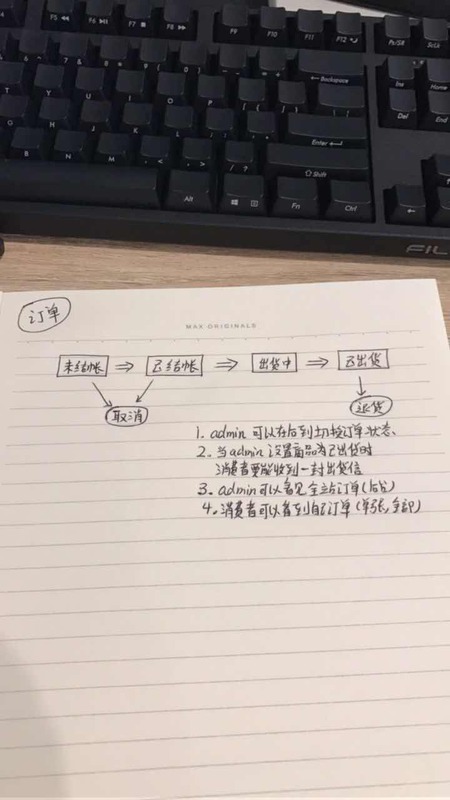 F5 F6 F7 F8 F9 F10 F11 F12 Ps/SR ScLk
← Backspace Ins Home
U I O P
Enter Del End
H J K L
Shift
B N M
Alt Fn Ctrl
FIL
订单
MAX·ORIGINALS
未结帐 ⇒ 已结帐 ⇒ 出货中 ⇒ 已出货
取消 退货
1. admin 可以在后台切换订单状态、
2. 当admin设置商品为已出货时
消费者要能收到一封出货信
3. admin可以看见全站订单(后台)
4. 消费者可以看到自己订单(单张,全部)